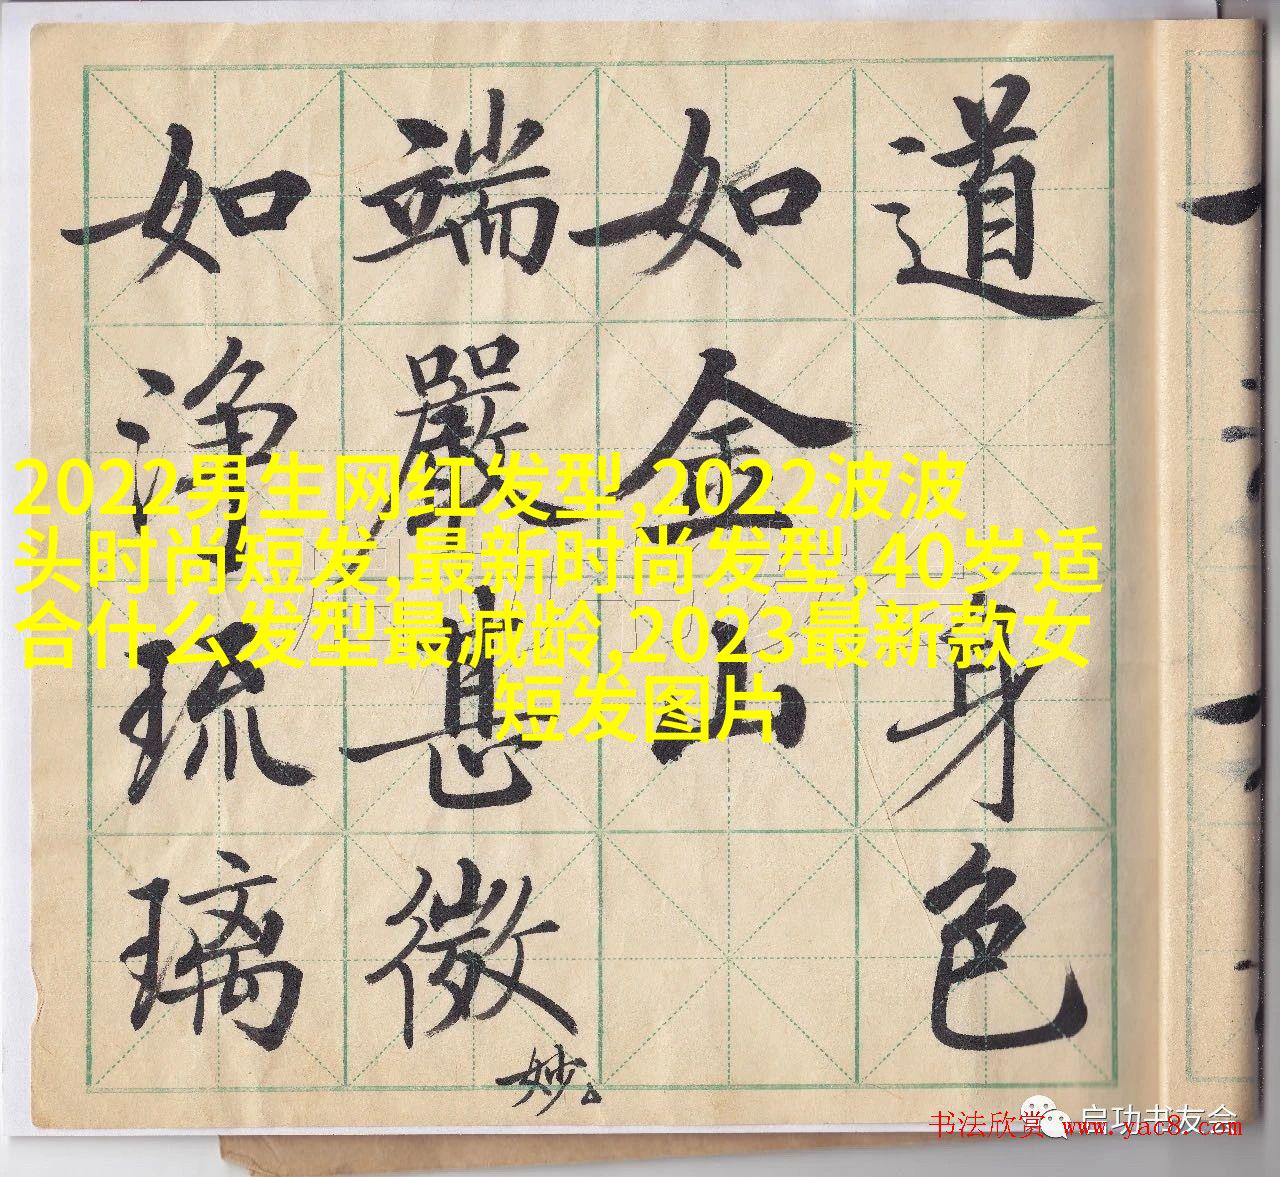 道
身色
如金山
端嚴甚微妙
如淨琉璃
2022男生网红发型,2022波波
头时尚短发,最新时尚发型,40岁适
合什么发型最减龄,2023最新款女
短发图片
启功书友会
书法欣赏 www.yac8.com